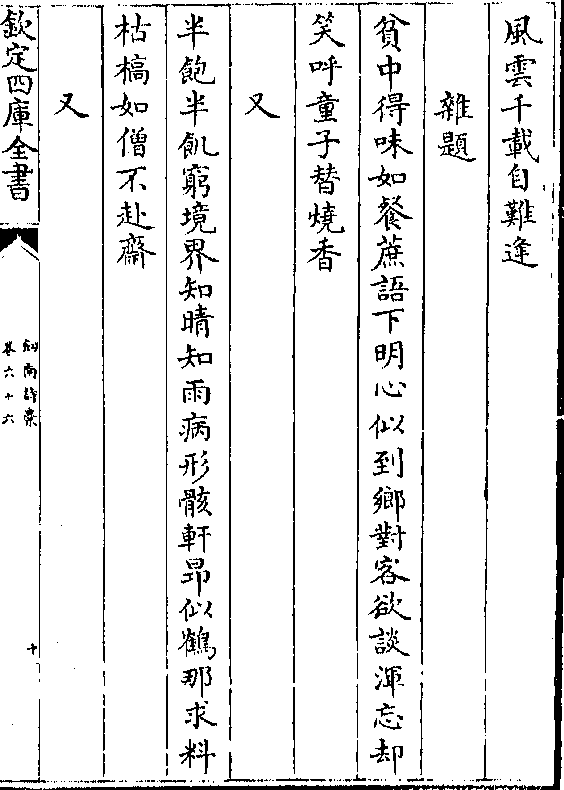 風雲千載自難逢
雜題
貧中得味如餐蔗語下明心似到鄉對客欲談渾忘却
笑呼童子替燒香
又
半飽半飢窮境界知晴知雨病形骸軒昻似鶴那求料
枯槁如僧不赴齋
又
欽定四庫全書
劍南詩稾
卷六十六
十